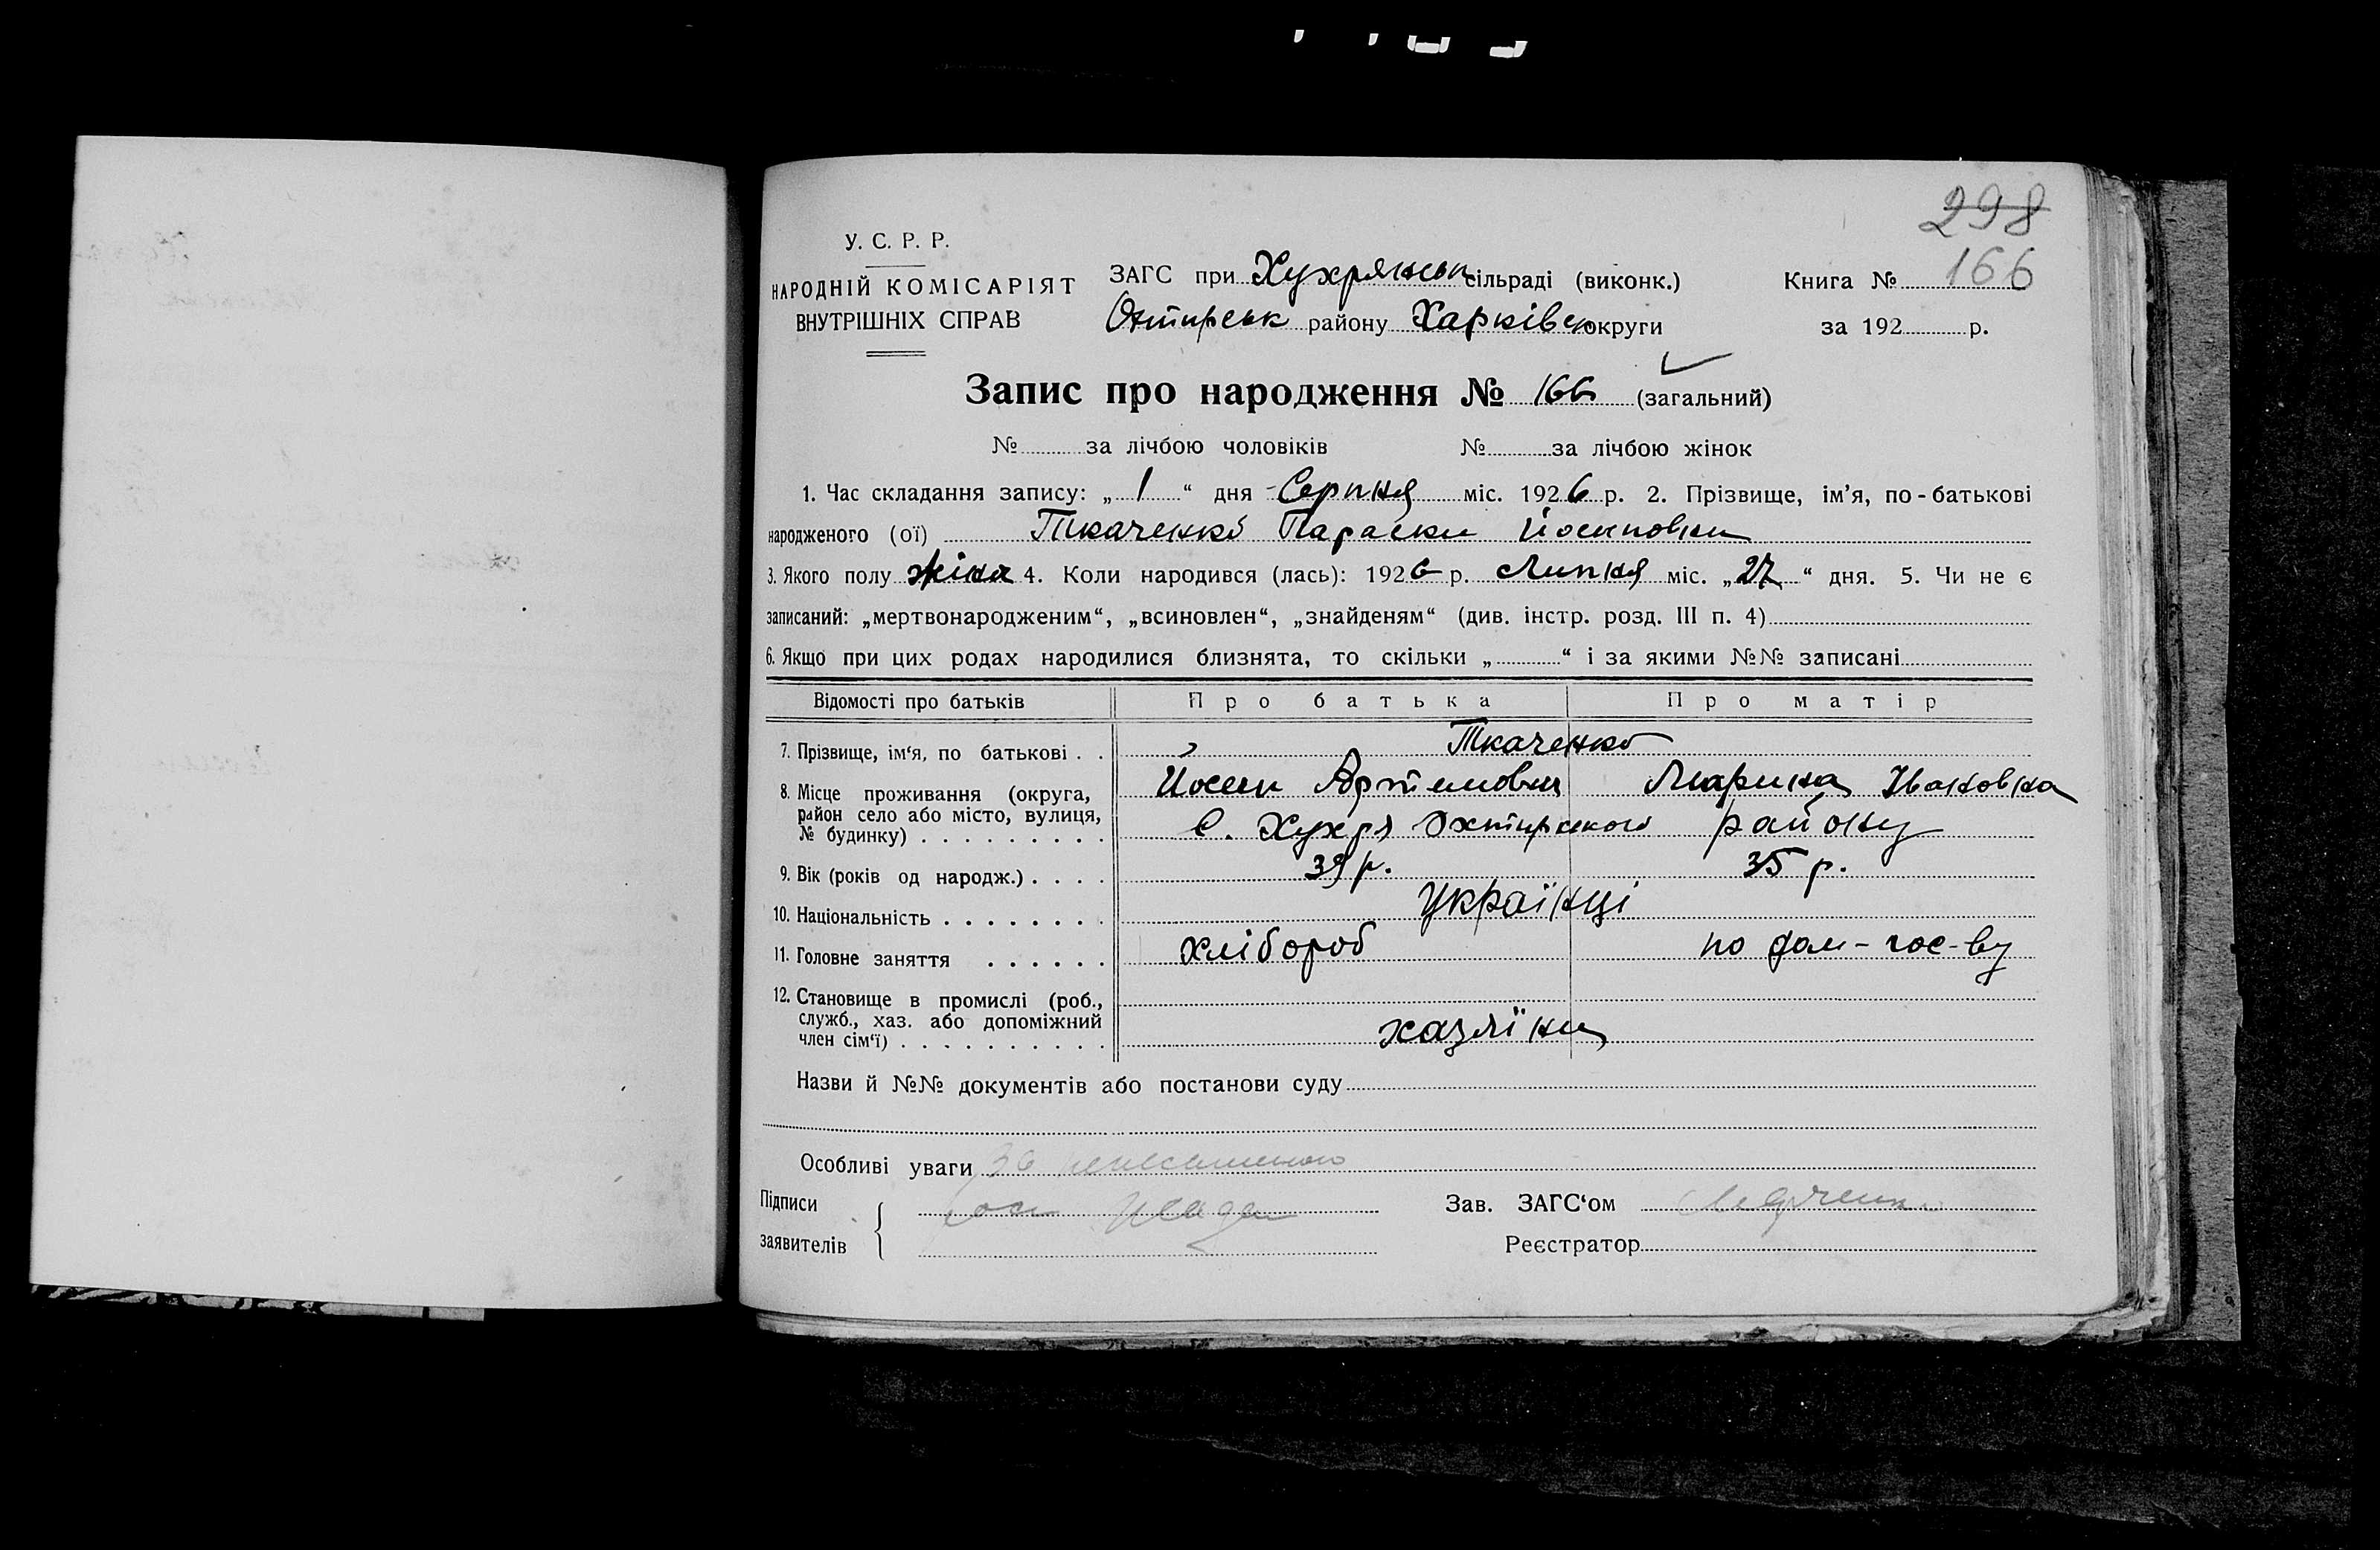 298
У. С. Р. Р.
НАРОДНІЙ КОМІСАРІЯТ
ВНУТРІШНІХ СПРАВ
ЗАГС при Хухрянськ сільраді (виконк.)
Охтирськ району Харківськ округи
Книга № 166
за 192 р.
Запис про народження № 166 (загальний)
№ за лічбою чоловіків № за лічбою жінок
1. Час складання запису: „ 1 “ дня Серпня міс. 1926 р. 2. Прізвище, ім'я, по-батькові
народженого (ої) Ткаченко Параски Йосиповни
3. Якого полу жіно 4. Коли народився (лась): 1926 р. Липня міс. „27“ дня. 5. Чи не є
записаний: „мертвонародженим“, „всиновлен“, „знайденям“ (див. інстр. розд. III п. 4)
6. Якщо при цих родах народилися близнята, то скільки „ “ і за якими №№ записані
Відомості про батьків Про батька Про матір
7. Прізвище, ім‘я, по батькові . . Ткаченко
Йосип Артемович Марина Ивановна
8. Місце проживання (округа,
район село або місто, вулиця,
№ будинку) . . . . . . . . . с. Хухря Охтирського району
9. Вік (років од народж.) . . . . 39 р. 35 р.
10. Національність . . . . . . . . українці
11. Головне заняття . . . . . . хлібороб по дом-гос-ву
12. Становище в промислі (роб.,
служб., хаз. або допоміжний
член сім‘ї) . . . . . . . . . . хазяїни
Назви й №№ документів або постанови суду
Особливі уваги
Підписи
заявителів
Зав. ЗАГС‘ом
Реєстратор